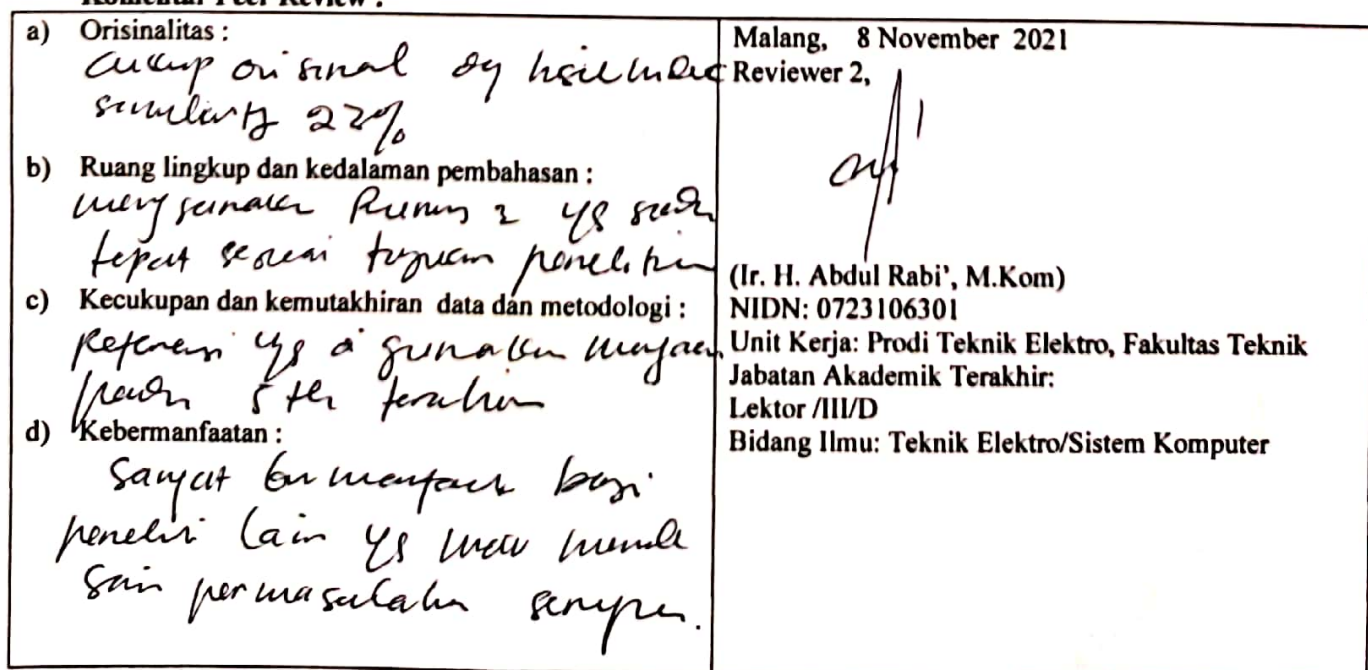 Komentar Peer Review :
a) Orisinalitas :
cukup orisinal dg hasil index
similarity 22%
b) Ruang lingkup dan kedalaman pembahasan :
menggunakan Rumus 2 yg sudah
tepat sesuai tujuan penelitian
c) Kecukupan dan kemutakhiran data dan metodologi :
Referensi yg digunakan mengacu
pada 5 th terakhir
d) Kebermanfaatan :
Sangat bermanfaat bagi
peneliti lain yg mau mende
sain permasalahan serupa.
Malang, 8 November 2021
Reviewer 2,
(Ir. H. Abdul Rabi', M.Kom)
NIDN: 0723106301
Unit Kerja: Prodi Teknik Elektro, Fakultas Teknik
Jabatan Akademik Terakhir:
Lektor /III/D
Bidang Ilmu: Teknik Elektro/Sistem Komputer